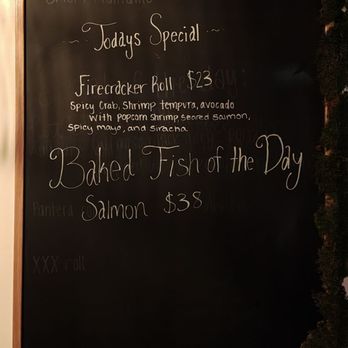 ~ Todays Special ~
Firecracker Roll $23
Spicy Crab, Shrimp tempura, avocado
with popcorn shrimp, seared salmon,
spicy mayo, and siracha
Baked Fish of the Day
Pantera Salmon $38
XXX roll